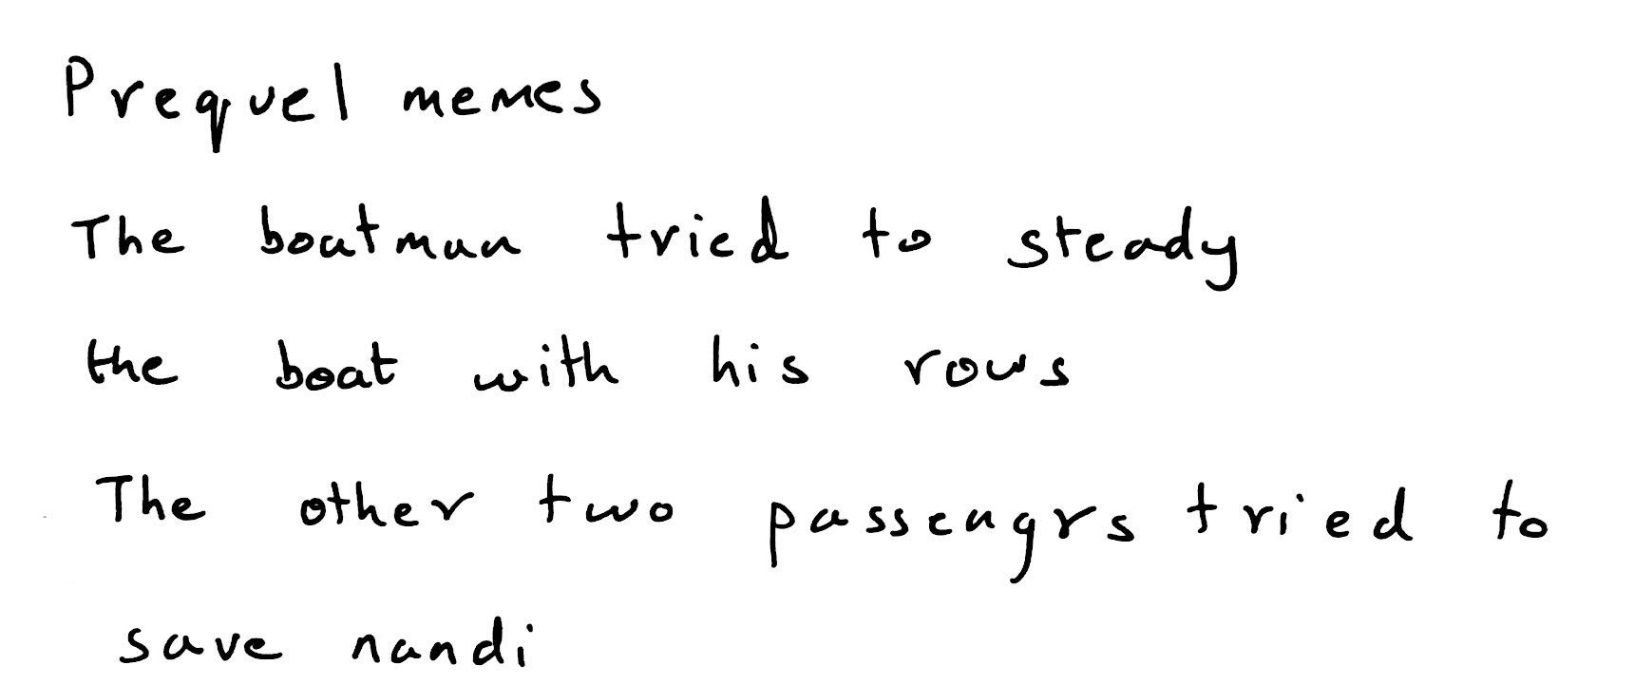 Prequel memes
The boatman tried to steady
the boat with his rows
The other two passengrs tried to
save nandi